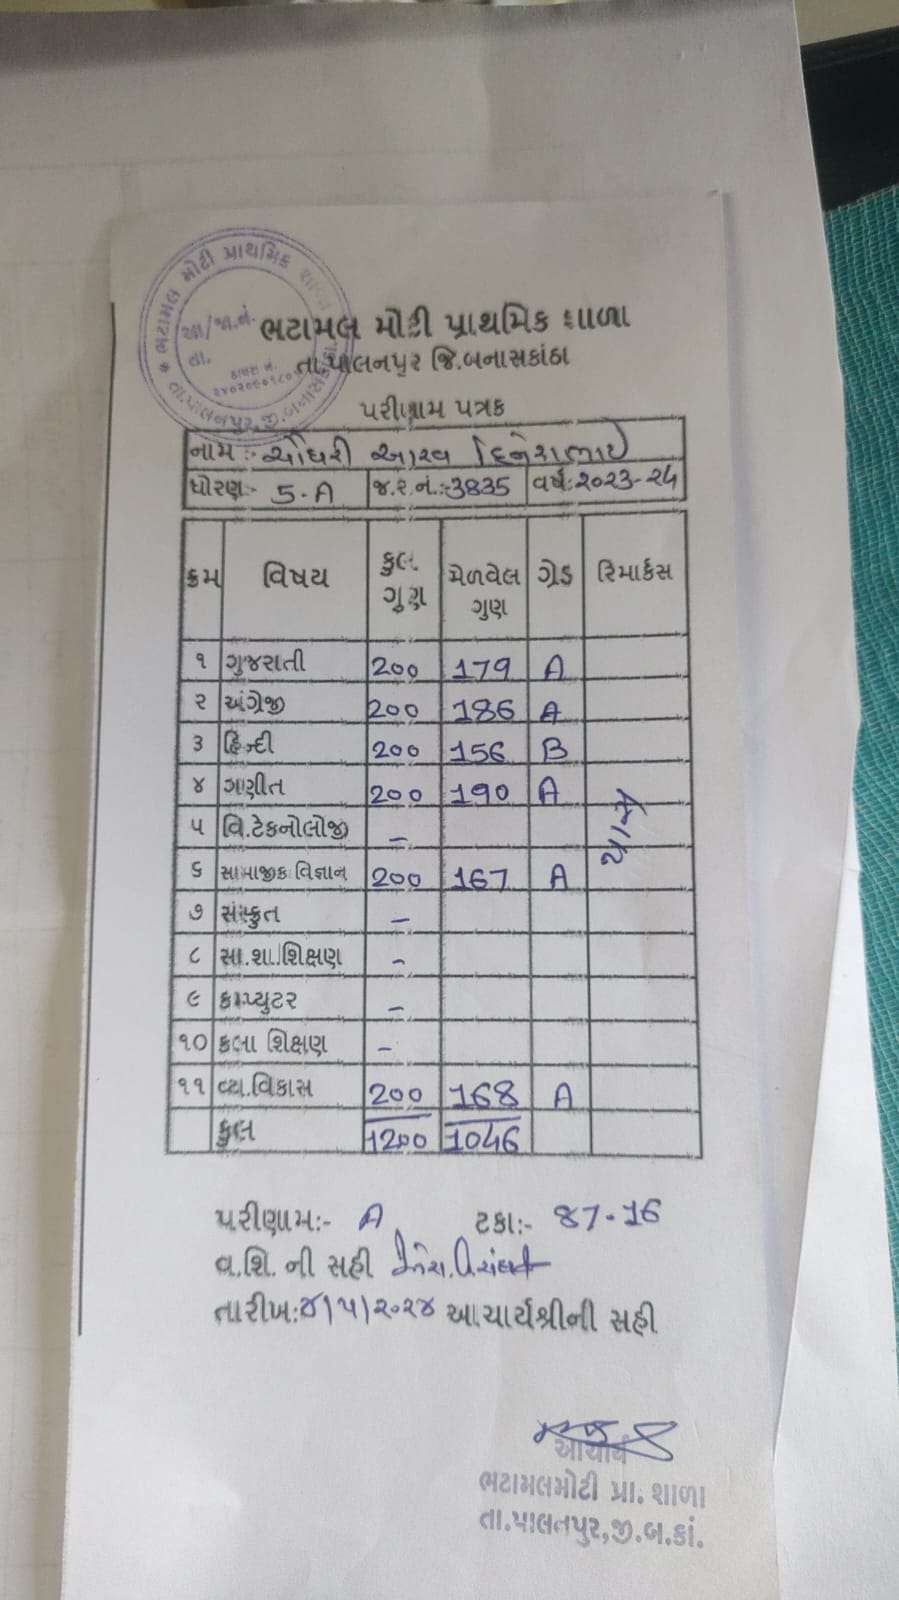 ભટામલ મોટી પ્રાથમિક શાળા
તા.પાલનપુર જિ.બનાસકાંઠા
પરીણામ પત્રક
નામ:- ચૌધરી આરવ દિનેશભાઇ
ધોરણ:- 5-A જ.ર.નં.:-3835 વર્ષ:-2023-24
ક્રમ વિષય કુલ ગુણ મેળવેલ ગુણ ગ્રેડ રિમાર્કસ
૧ ગુજરાતી 200 179 A
૨ અંગ્રેજી 200 186 A
૩ હિન્દી 200 156 B
૪ ગણીત 200 190 A
૫ વિ.ટેકનોલોજી -
૬ સામાજીક વિજ્ઞાન 200 167 A
૭ સંસ્કૃત -
૮ સા.શા.શિક્ષણ -
૯ કમ્પ્યુટર -
૧૦ કલા શિક્ષણ -
૧૧ વ્ય.વિકાસ 200 168 A
કુલ 1200 1046
પાસ
પરીણામ:- A ટકા:- 87-16
વ.શિ. ની સહી
તારીખ:૪/૫/૨૦૨૪ આચાર્યશ્રીની સહી
આચાર્ય
ભટામલમોટી પ્રા. શાળા
તા.પાલનપુર,જી.બ.કાં.